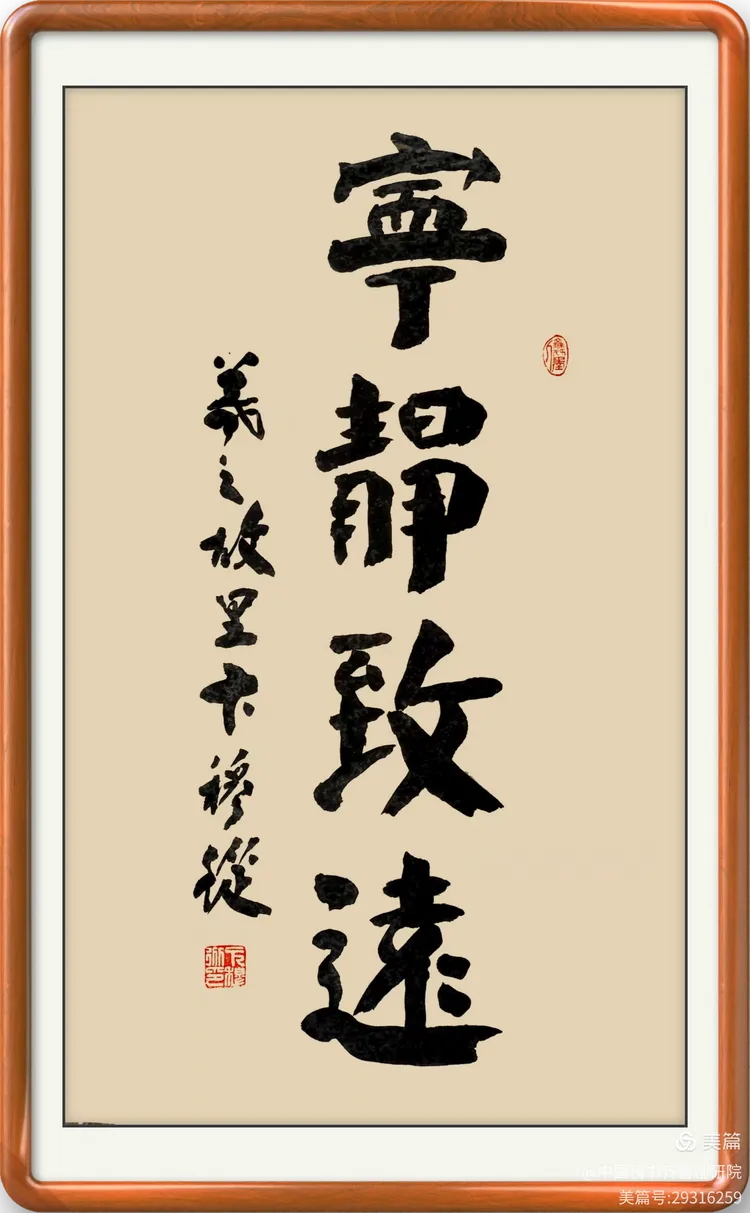 寧靜致遠
羲之故里卞穆從
美篇
美篇号:29316259